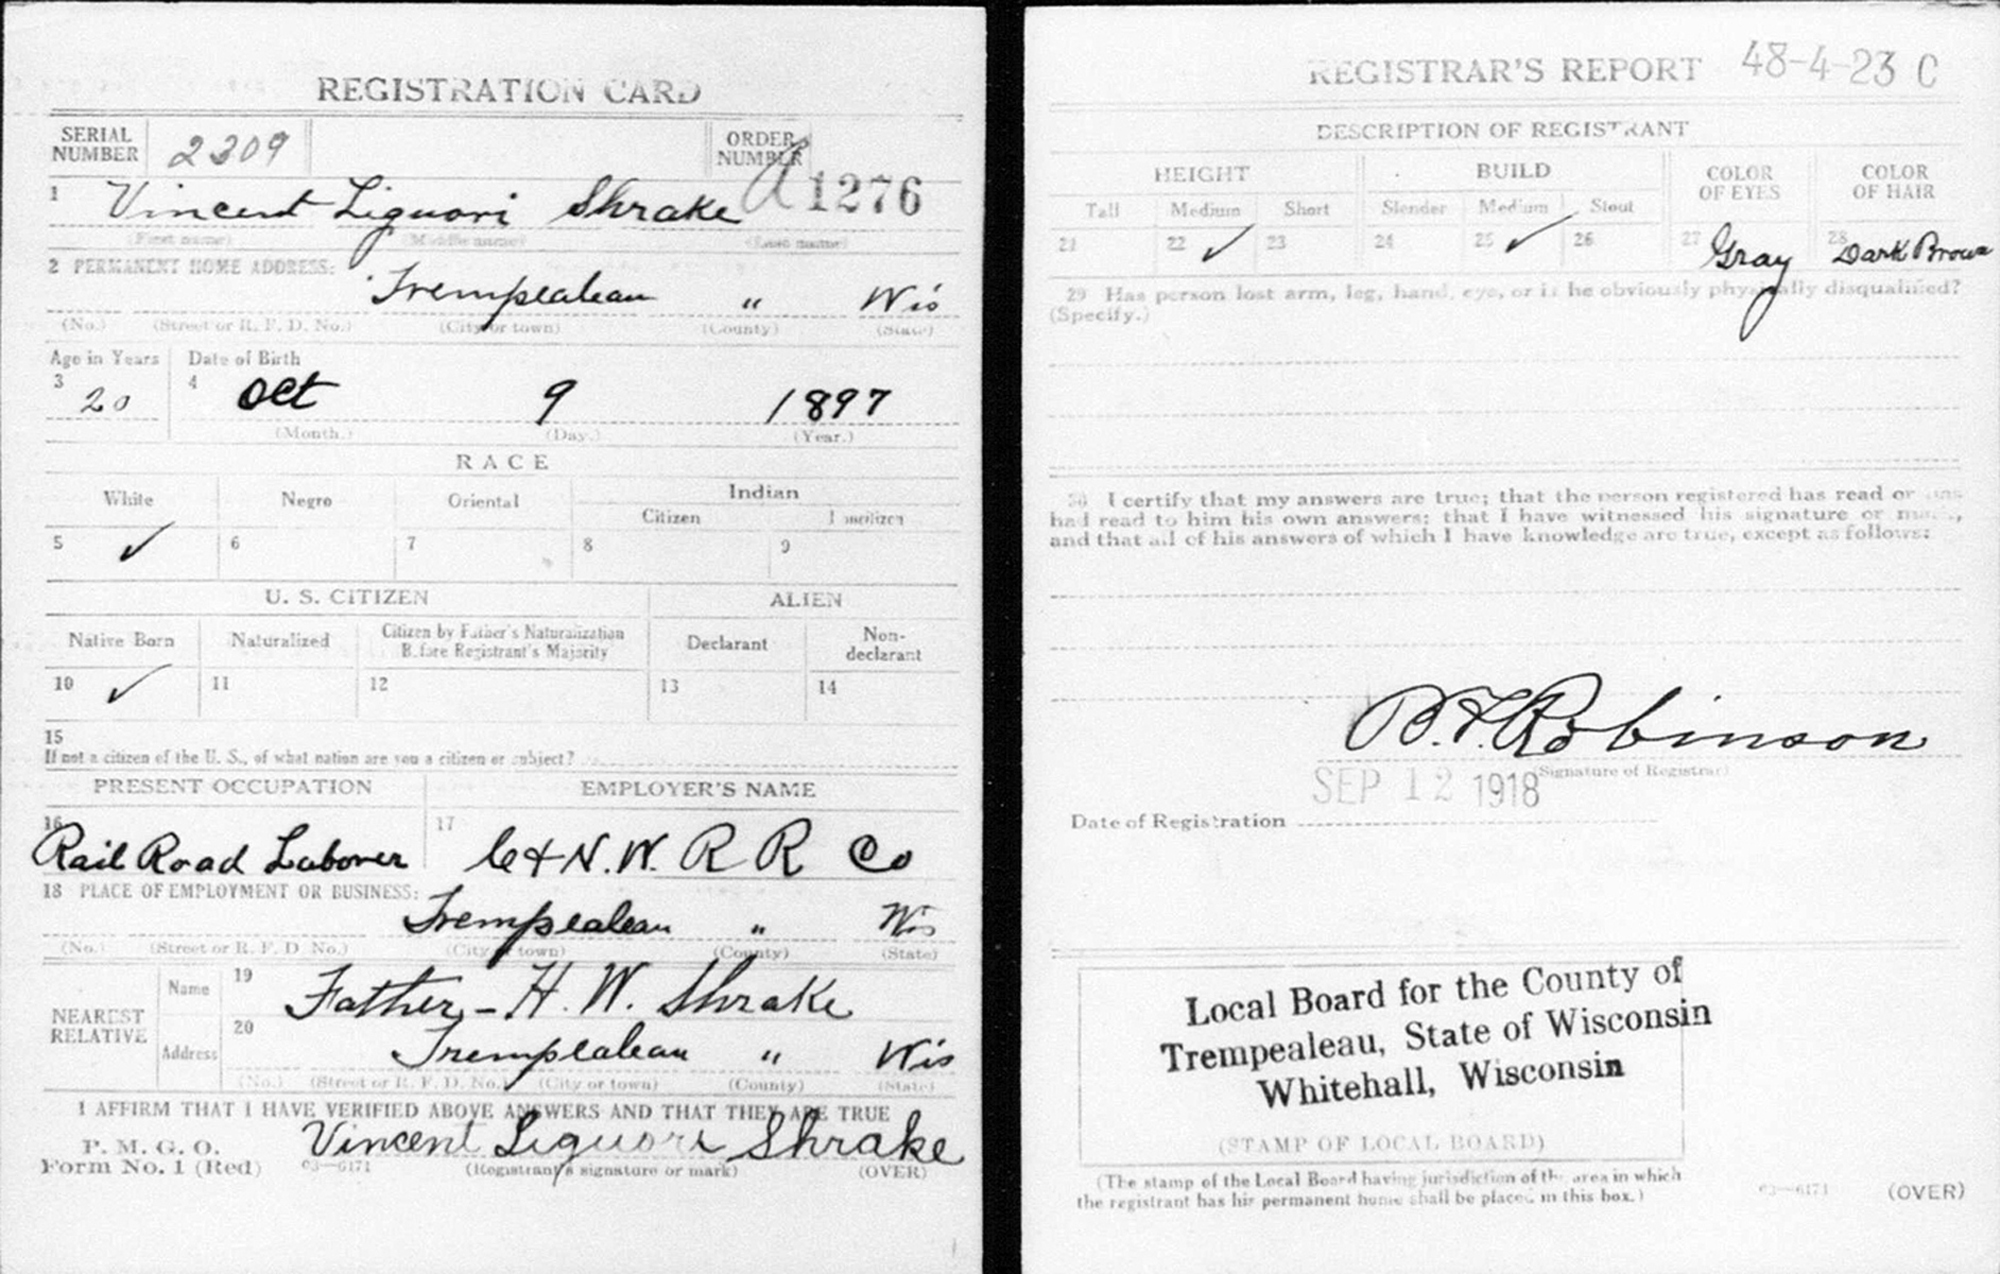 REGISTRATION CARD
SERIAL NUMBER 2309 ORDER NUMBER A1276
1 Vincent Liguori Shrake
(First name) (Middle name) (Last name)
2 PERMANENT HOME ADDRESS:
Trempealeau " Wis
(No.) (Street or R. F. D. No.) (City or town) (County) (State)
Age in Years Date of Birth
3 20 4 Oct 9 1897
(Month.) (Day.) (Year.)
RACE
White Negro Oriental Indian
Citizen Noncitizen
5 ✓ 6 7 8 9
U. S. CITIZEN ALIEN
Native Born Naturalized Citizen by Father's Naturalization Before Registrant's Majority Declarant Non-declarant
10 ✓ 11 12 13 14
15
If not a citizen of the U. S., of what nation are you a citizen or subject?
PRESENT OCCUPATION EMPLOYER'S NAME
16 Rail Road Laborer 17 C + N. W. R R Co
18 PLACE OF EMPLOYMENT OR BUSINESS:
Trempealeau " Wis
(No.) (Street or R. F. D. No.) (City or town) (County) (State)
NEAREST RELATIVE
Name 19 Father - H. W. Shrake
Address 20 Trempealeau " Wis
(No.) (Street or R. F. D. No.) (City or town) (County) (State)
I AFFIRM THAT I HAVE VERIFIED ABOVE ANSWERS AND THAT THEY ARE TRUE
P. M. G. O.
Form No. 1 (Red) 03—6171 Vincent Liguori Shrake
(Registrant's signature or mark) (OVER)
REGISTRAR'S REPORT 48-4-23 C
DESCRIPTION OF REGISTRANT
HEIGHT BUILD COLOR OF EYES COLOR OF HAIR
Tall Medium Short Slender Medium Stout
21 22 ✓ 23 24 25 ✓ 26 27 Gray 28 Dark Brown
29 Has person lost arm, leg, hand, eye, or is he obviously physically disqualified?
(Specify.)
30 I certify that my answers are true; that the person registered has read or has
had read to him his own answers; that I have witnessed his signature or mark,
and that all of his answers of which I have knowledge are true, except as follows:
B. F. Robinson
(Signature of Registrar)
Date of Registration SEP 12 1918
Local Board for the County of
Trempealeau, State of Wisconsin
Whitehall, Wisconsin
(STAMP OF LOCAL BOARD)
(The stamp of the Local Board having jurisdiction of the area in which
the registrant has his permanent home shall be placed in this box.)
03—6171 (OVER)